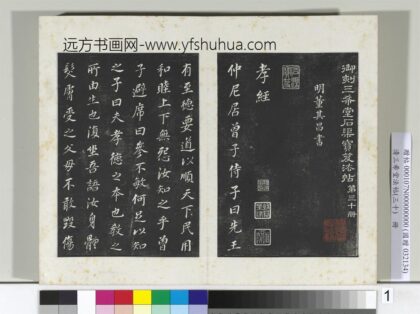 远方书画网-www.yfshuhua.com
御刻三希堂石渠寶笈法帖第三十册
明董其昌書
孝經
仲尼居曾子侍子曰先王
有至德要道以順天下民用
和睦上下無怨汝知之乎曾
子避席曰參不敏何足以知
之子曰夫孝德之本也教之
所由生也復坐吾語汝身體
髮膚受之父母不敢毀傷
1